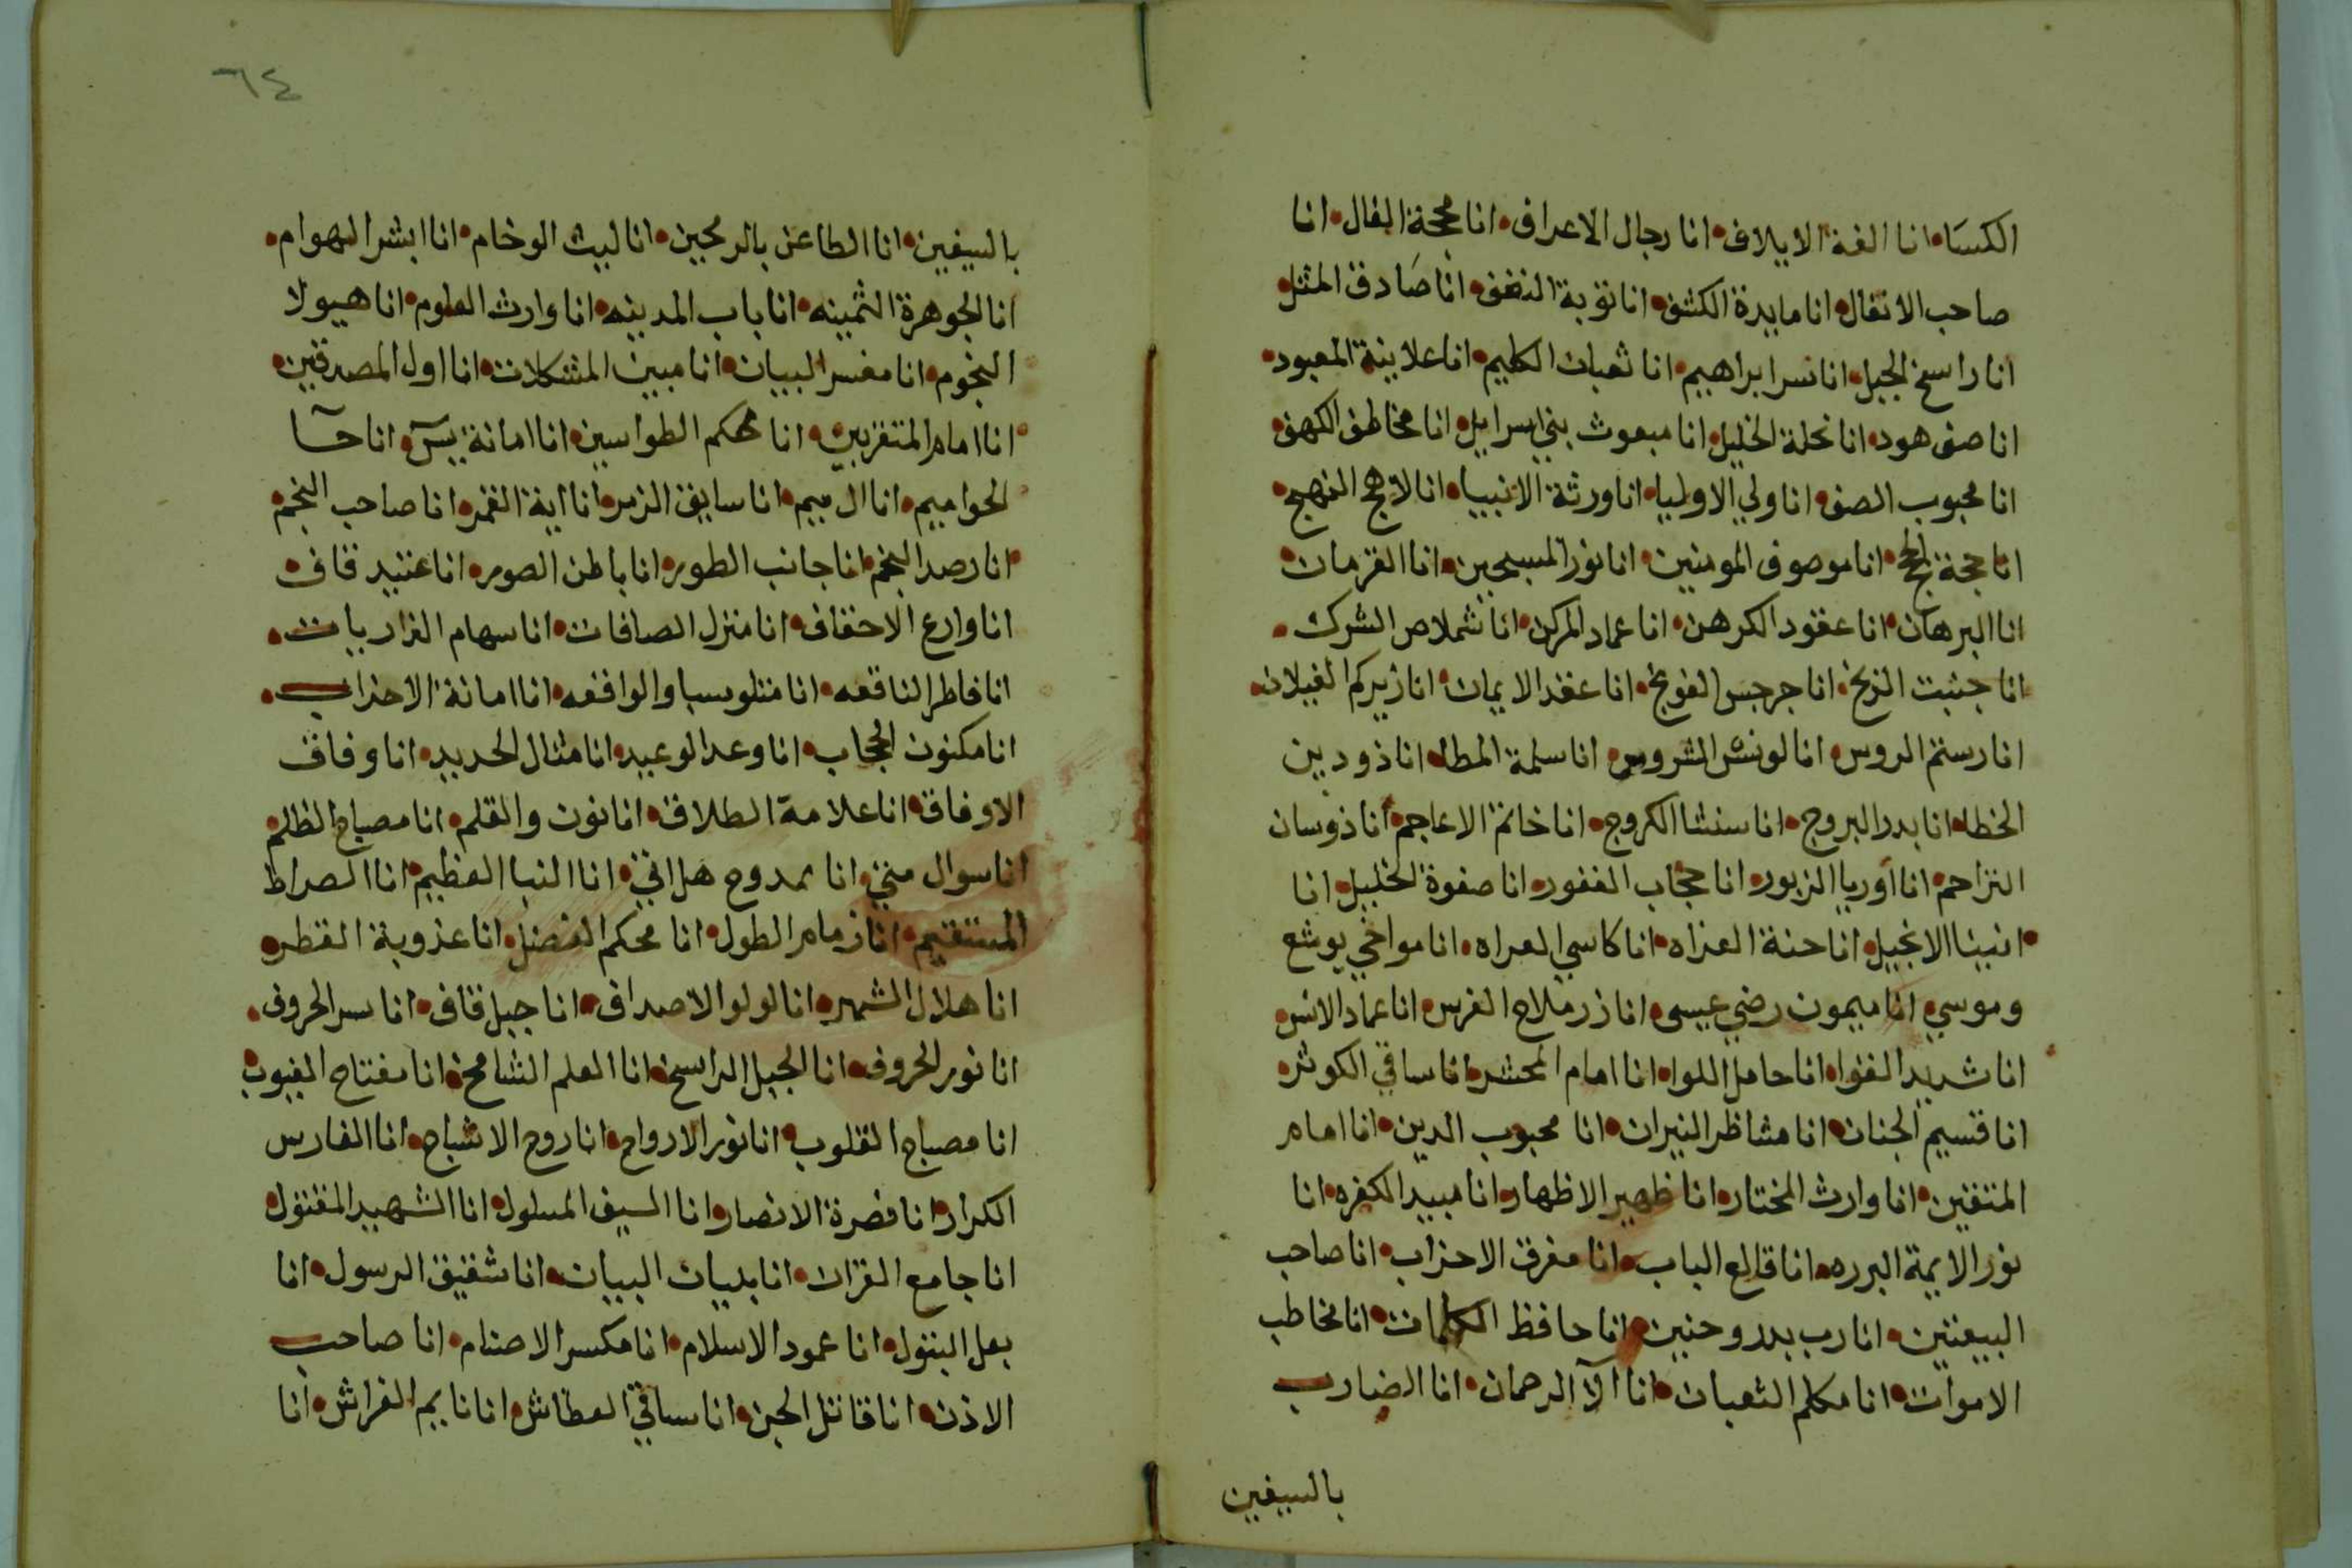 الكسا انا الفة الايلاف انا رجال الاعراف انا محجة الفال انا
صاحب الانفال انا مايدة الكشف انا توبة انا صادق المثل
انا راسخ الجبل انا سر ابراهيم انا ثعبان الكليم انا علانية المعبود
انا صف هود انا نحلة الخليل انا مبعوث بني اسرايل انا مخاطف الكهف
انا محبوب الصف انا ولي الاوليا انا ورثة الانبيا انا لاهج النهج
انا حجة الحج انا موصوف المومنين انا نور المسبحين انا القرمان
انا البرهان انا عقود الكرهن انا عماد المركن انا شملاص الشرك
انا جنبت الزبخ انا جرجس الفويخ انا عقد الايمان انا زيركم الغيلان
انا رستم الروس انا لونش الشروس انا سلمة المطا انا ذو دبين
الخطا انا بدر البروج انا سنشا الكروج انا خاتم الاعاجم انا ذوسان
التراحم انا اوريا الزبور انا حجاب الغفور انا صفوة الخليل انا
انا حنة العزاه انا كاسي العراه انا مواخي يوشع
وموسي انا ميمون رضي عيسى انا ذر ملاح الفرس انا عماد الانس
انا شديد القوا انا حامل اللوا انا امام المحشر انا ساقي الكوثر
انا قسيم الجنان انا مشاظر النيران انا محبوب الدين انا امام
المتقين انا وارث المختار انا ظهير الاظهار انا مبيد الكفره انا
نور الايمة البرره انا قالع الباب انا مفرق الاحزاب انا صاحب
البيعتين انا رب بدر وحنين انا حافظ الكلمات انا مخاطب
الاموات انا مكلم الثعبان انا آلآ الرحمان انا الضارب
بالسيفين
٦٤
بالسيفين انا الطاعن بالرمحين انا ليث الوخام انا ابشر الهوام
انا الجوهرة الثمينه انا باب المدينه انا وارث العلوم انا هيولا
النجوم انا مفسر البيان انا مبين المشكلات انا اول المصدقين
انا امام المتقربين انا محكم الطواسين انا امانة يس انا حآ
الحواميم انا ال ميم انا سايق الزمر انا اية القمر انا صاحب النجم
انا رصد النجم انا جانب الطور انا باطن الصور انا عتيد قاف
انا وارع الاحقاف انا منزل الصافات انا سهام الذاريات
انا فاطر الناقعه انا متلو سبا والواقعه انا امانة الاحزاب
انا مكنون الحجاب انا وعد الوعيد انا مثال الحديد انا وفاق
الاوفاق انا علامة الطلاق انا نون والقلم انا مصباح الظلم
انا سوال متي انا ممدوح هل اتي انا النبا العظيم انا الصراط
المستقيم انا زمام الطول انا محكم الفضل انا عذوبة القطر
انا هلال الشهر انا لولو الاصداف انا جبل قاف انا سر الحروف
انا نور الحروف انا الجبل الراسخ انا العلم الشامخ انا مفتاح الغيوب
انا مصباح القلوب انا نور الارواح انا روح الاشباح انا الفارس
الكرار انا نصرة الانصار انا السيف المسلول انا الشهيد المقتول
انا جامع القران انا بليان البيان انا شقيق الرسول انا
بعل البتول انا عمود الاسلام انا مكسر الاصنام انا صاحب
الاذن انا قاتل الجن انا ساقي العطاش انا نايم الفراش انا